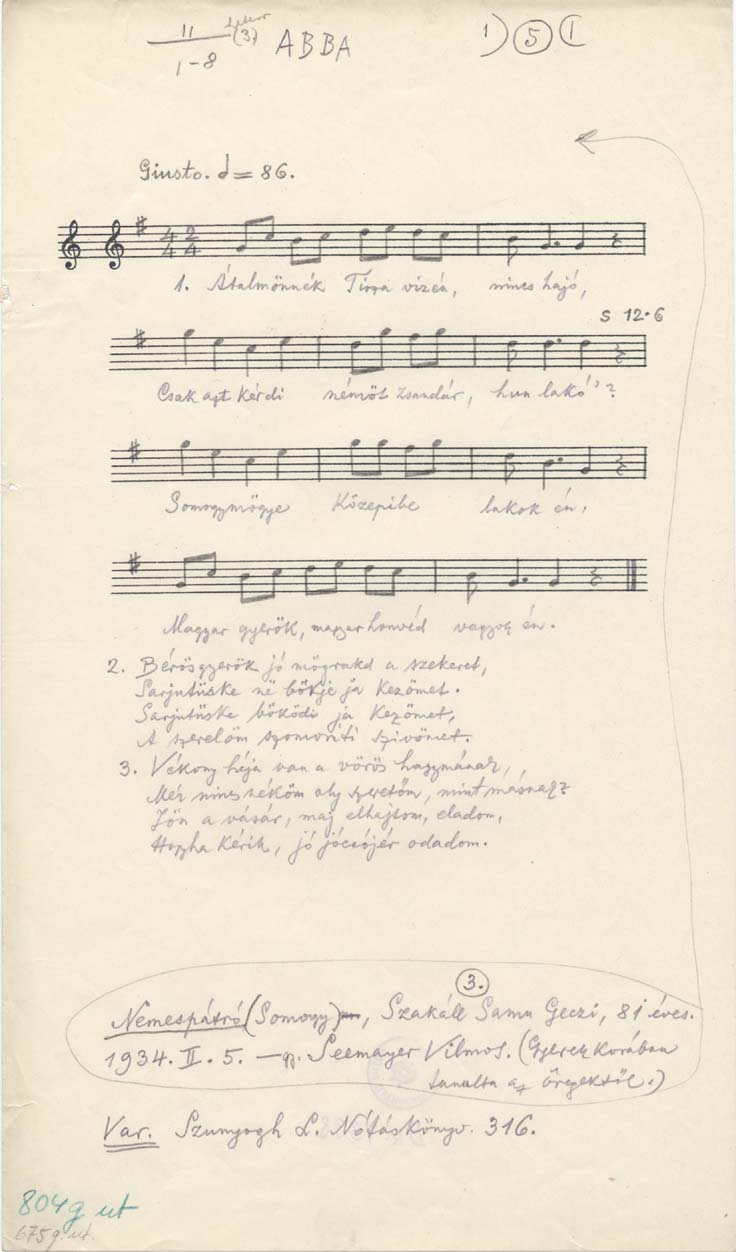 11 (3)
1-8
ABBA
1) 5 (1
Giusto. = 86.
4 2
4 4
1. Átalmönnék Tisza vizén, nincs hajó,
S 12.6
Csak azt kérdi németh zsandár, hun lakó?
Somogymögye Közepibe lakok én,
Magyar gyerök, magyar honvéd vagyok én.
2. Bérösgyerök jó mögrakd a szekeret,
Sarjutüske ne bökje ja kezömet.
Sarjutüske böködi ja kezömet,
A szerelöm szomoríti szivömet.
3. Vékony héja van a vörös hagymának,
Mér nincs néköm oly szeretőm, mint másnak?
Jön a vásár, maj elhajtom, eladom,
Hogyha kérik, jó jócsójér odadom.
3.
Nemespátró (Somogy), Szakáll Samu Geczi, 81 éves.
1934. II. 5. — gy. Seemayer Vilmos. (Gyerekkorában
tanulta az öregektől.)
Var. Szunyogh L. Nótáskönyv. 316.
804g ut
675g. ut.